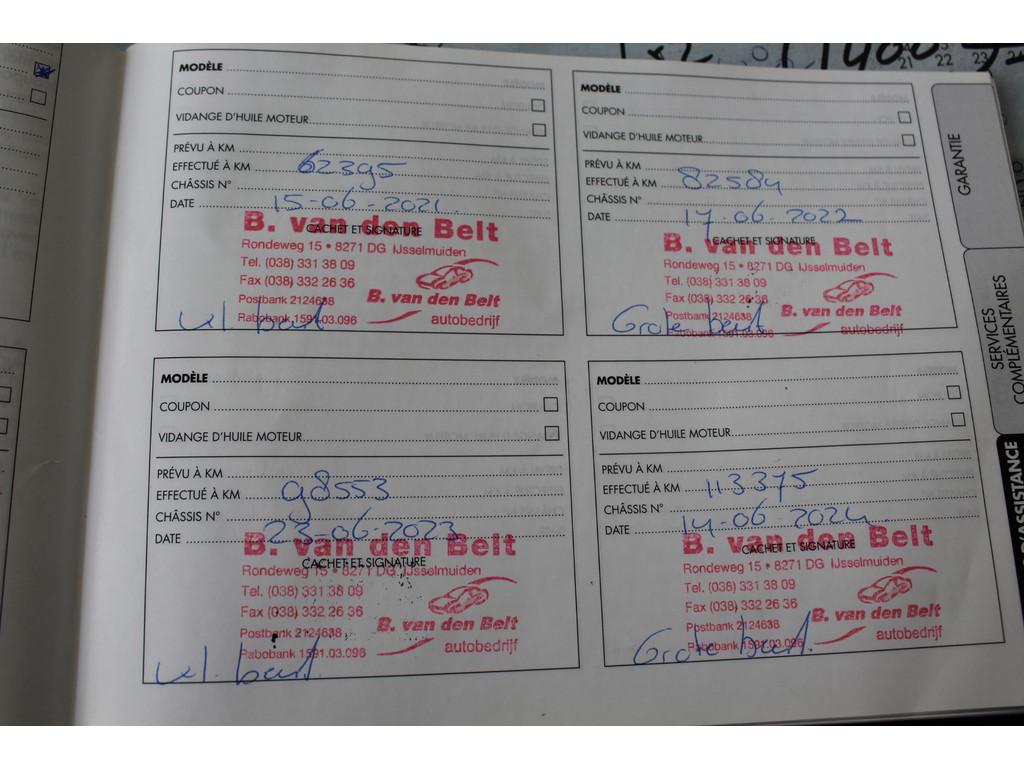 MODÈLE
COUPON
VIDANGE D'HUILE MOTEUR
PRÉVU À KM
EFFECTUÉ À KM 62395
CHÂSSIS N°
DATE 15-06-2021
CACHET ET SIGNATURE
B. van den Belt
Rondeweg 15 • 8271 DG IJsselmuiden
Tel. (038) 331 38 09
Fax (038) 332 26 36
Postbank 2124638
B. van den Belt
Rabobank 1591.03.096
autobedrijf
kl. beurt
MODÈLE
COUPON
VIDANGE D'HUILE MOTEUR
PRÉVU À KM
EFFECTUÉ À KM 82584
CHÂSSIS N°
DATE 17-06-2022
CACHET ET SIGNATURE
B. van den Belt
Rondeweg 15 • 8271 DG IJsselmuiden
Tel. (038) 331 38 09
Fax (038) 332 26 36
Postbank 2124638
B. van den Belt
Rabobank 1591.03.096
autobedrijf
Grote beurt
MODÈLE
COUPON
VIDANGE D'HUILE MOTEUR
PRÉVU À KM
EFFECTUÉ À KM 98553
CHÂSSIS N°
DATE 23-06-2023
CACHET ET SIGNATURE
B. van den Belt
Rondeweg 15 • 8271 DG IJsselmuiden
Tel. (038) 331 38 09
Fax (038) 332 26 36
Postbank 2124638
B. van den Belt
Rabobank 1591.03.096
autobedrijf
kl. beurt
MODÈLE
COUPON
VIDANGE D'HUILE MOTEUR
PRÉVU À KM
EFFECTUÉ À KM 113375
CHÂSSIS N°
DATE 14-06 2024
CACHET ET SIGNATURE
B. van den Belt
Rondeweg 15 • 8271 DG IJsselmuiden
Tel. (038) 331 38 09
Fax (038) 332 26 36
Postbank 2124638
B. van den Belt
Rabobank 1591.03.096
autobedrijf
Grote beurt.
GARANTIE
SERVICES
COMPLÉMENTAIRES
21
22
23
24